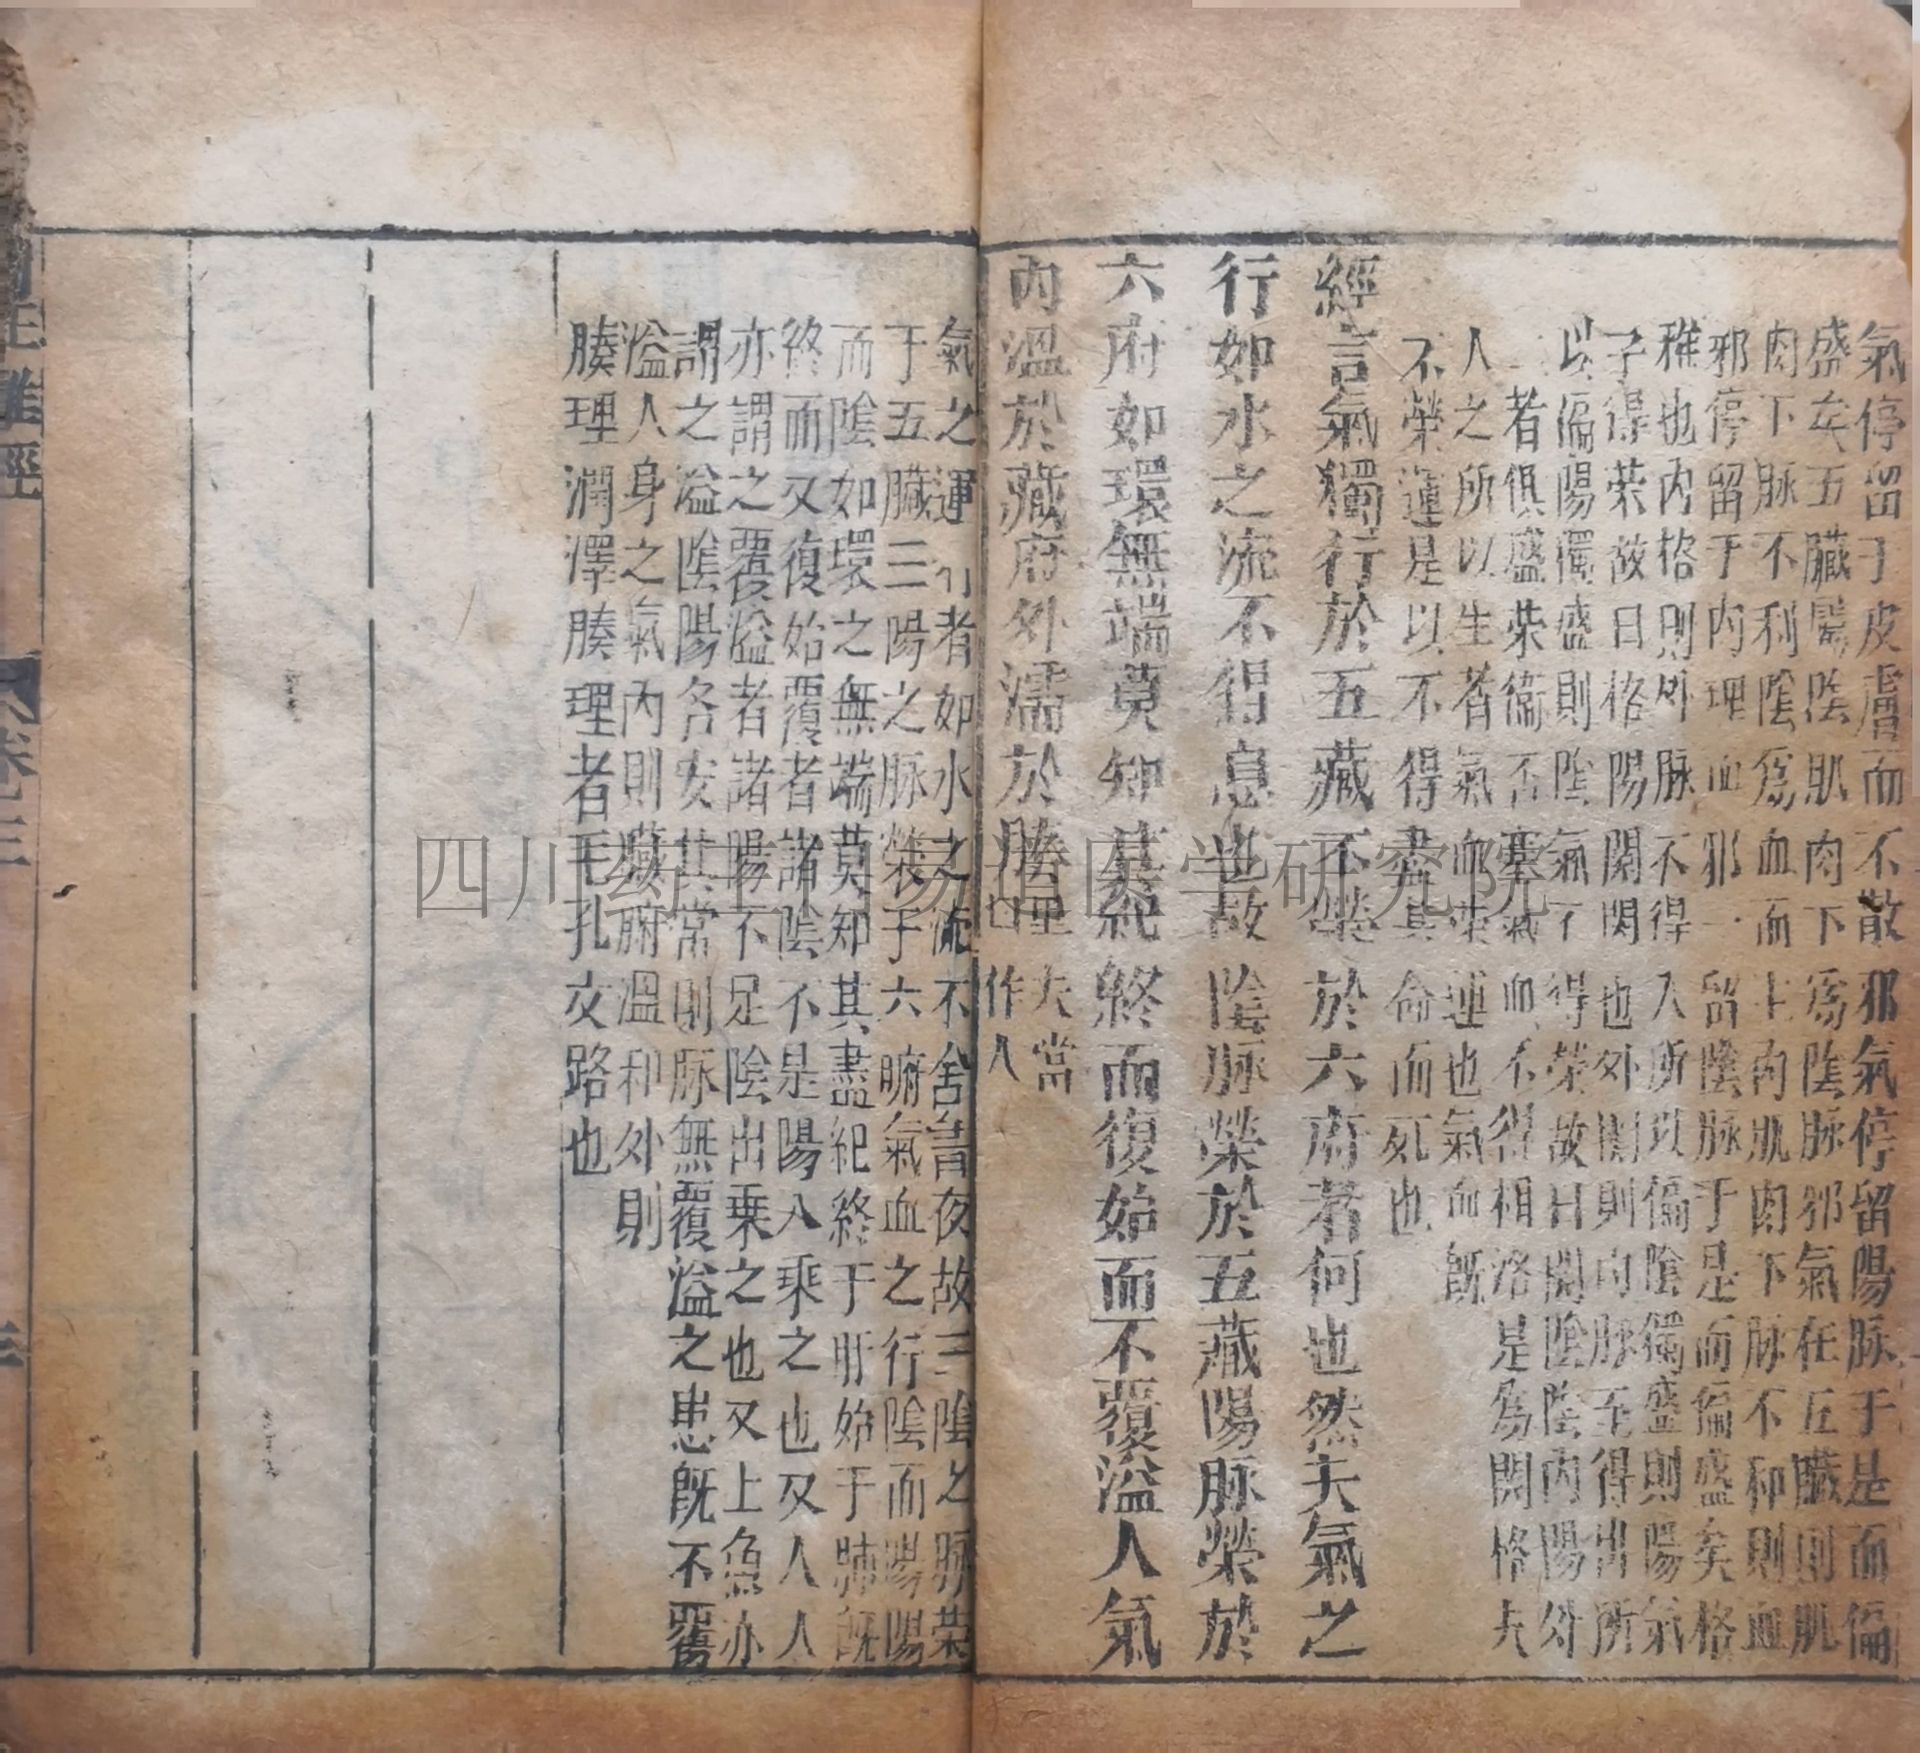 氣停留于皮膚而不散邪氣停留陽脉于是而偏
盛矣五臟屬陰肌肉下爲陰脉邪氣在五臟則肌
肉下脉不利陰爲血而主肉肌肉下脉不和則血
邪停留于內理血邪一留陰脉于是而偏盛矣格
雅也內格則外脉不得入所以偏陰獨盛則陽氣
子得荣故曰格陽関閉也外関則内脉至得出所
以偏陽獨盛則陰氣不得榮故曰関陰陰內陽外
二者俱盛荣衞否塞氣血不得相洛是爲関格夫
人之所以生者氣血榮運也氣血旣
不榮運是以不得盡其命而死也
經言氣獨行於五藏不榮於六府者何也然夫氣之
行如水之流不得息也故陰脉榮於五藏陽脉榮於
六府如環無端莫知其紀終而復始而不覆溢人氣
內溫於藏府外濡於腠理 夫當作人
氣之運行者如水之流不舍昔夜故三陰之脉荣
于五臟三陽之脉荣于六腑氣血之行陰而陽陽
而陰如環之無端莫知其盡紀終于肝始于肺旣
終而又復始覆者諸陰不是陽入乘之也又人人
亦謂之覆溢者諸陽不足陰出乗之也又上魚亦
謂之溢陰陽各安其常則脉無覆溢之患旣不覆
溢人身之氣內則藏腑溫和外則
腠理潤澤腠理者毛孔文路也
難經
卷三
四川药王门易道医学研究院